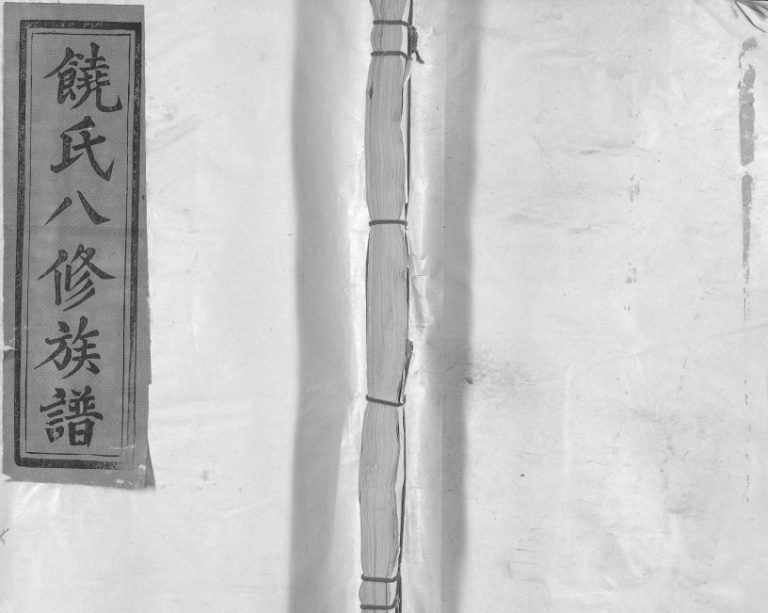 饒氏八修族譜